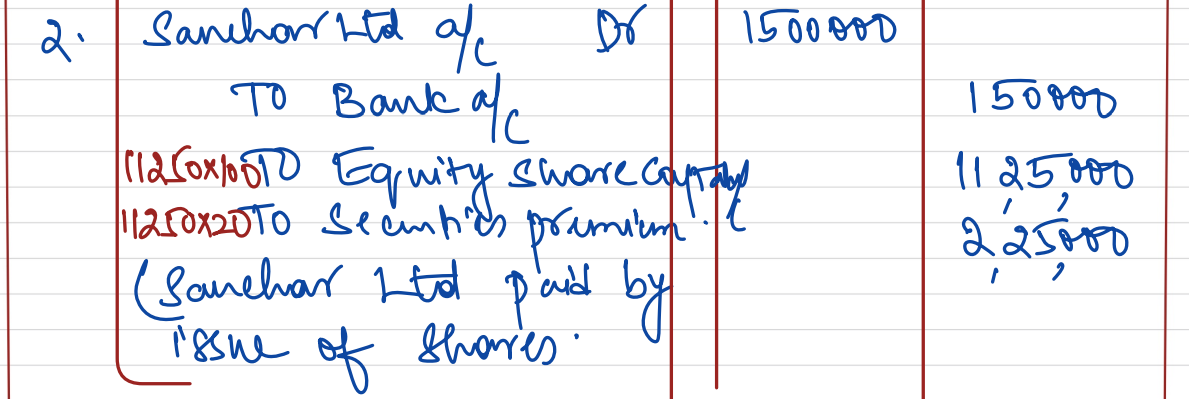 2. Sanchar Ltd a/c Dr 1500000
TO Bank a/c 150000
11250x100 TO Equity share capital 11,25,000
11250x20 TO Securities premium. 2,25,000
(Sanchar Ltd paid by
issue of shares.